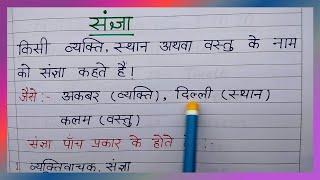 संज्ञा
किसी व्यक्ति, स्थान अथवा वस्तु के नाम
को संज्ञा कहते हैं।
जैसे:- अकबर (व्यक्ति), दिल्ली (स्थान)
कलम (वस्तु)
संज्ञा पाँच प्रकार के होते
व्यक्तिवाचक, संज्ञा